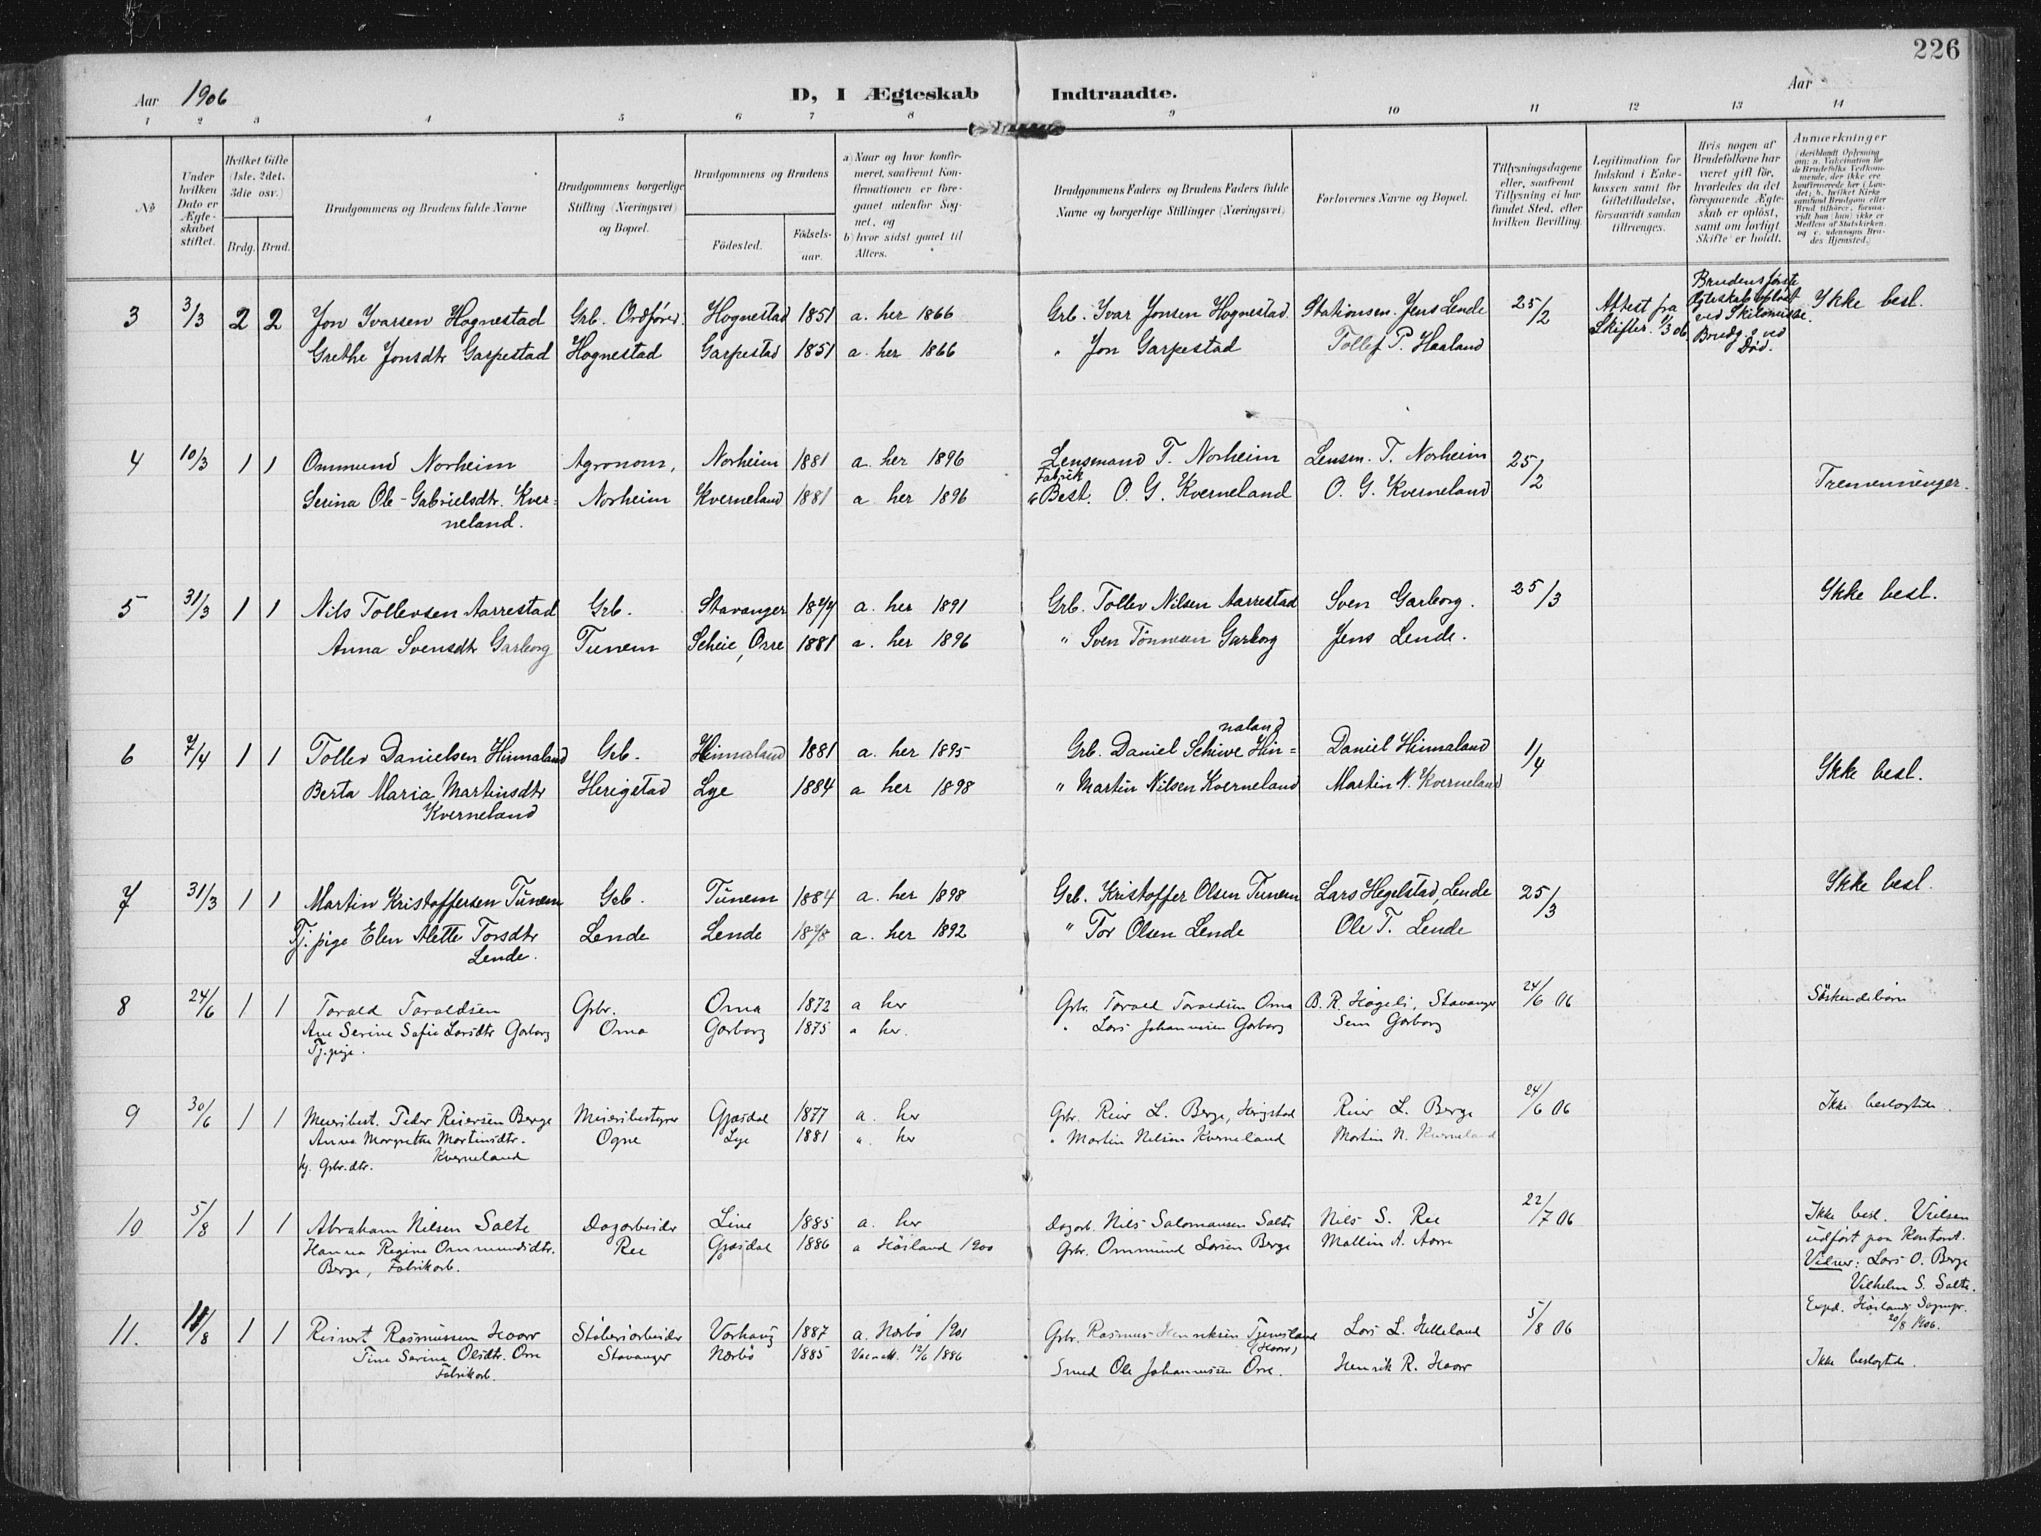 226
Aar 1906
D, I Ægteskab Indtraadte.
Aar
1 2 3 4 5 6 7 8 9 10 11 12 13 14
No
Under hvilken Dato er Ægteskabet stiftet.
Hvilket Gifte (1ste. 2det. 3die osv.)
Brdg. Brud.
Brudgommens og Brudens fulde Navne
Brudgommens borgerlige Stilling (Næringsvei) og Bopæl.
Brudgommens og Brudens
Fødested. Fødselsaar.
a) Naar og hvor konfirmeret, saafremt Konfirmationen er foregaaet udenfor Sognet, og
b) hvor sidst gaaet til Alters.
Brudgommens Faders og Brudens Faders fulde Navne og borgerlige Stillinger (Næringsvei)
Forlovernes Navne og Bopæl.
Tillysningsdagene eller, saafremt Tillysning ei har fundet Sted, efter hvilken Bevilling.
Legitimation for Indskud i Enkekassen samt for Giftetilladelse, forsaavidt saadan tiltrænges.
Hvis nogen af Brudefolkene har været gift før, hvorledes da det foregaaende Ægteskab er opløst, samt om lovligt Skifte er holdt.
Anmærkninger
(deriblandt Oplysning om: a. Vakcination for de Brudefolks Vedkommende, der ikke ere konfirmerede her i Landet; b. hvilket Kirkesamfund Brudgom eller Brud tilhører, forsaavidt han (hun) ikke er Medlem af Statskirken, og c. udensogns Brudes Hjemsted.)
3 3/3 2 2 Jon Ivarsen Hognestad Grb. Ordfører. Hognestad 1851 a. her 1866 Grb. Ivar Jonsen Hognestad Stationsm. Jens Lende 25/2 Attest fra Skifter. 1/3 06. Brudens første Ægteskab opløst ved Skilsmisse. Brudg. 2 ved Død. Ikke besl.
Grethe Jonsdtr Garpestad Hognestad Garpestad 1851 a. her 1866 " Jon Garpestad Tollef P. Haaland
4 10/3 1 1 Ommund Norheim Agronom, Norheim 1881 a. her 1896 Lensmand T. Norheim Lensm. T. Norheim 25/2
Serina Ole-Gabrielsdtr. Kver= Norheim Kverneland 1881 a her 1896 Fabrik Best. O. G. Kverneland O. G. Kverneland Tremenninger.
neland.
5 31/3 1 1 Nils Tollevsen Aarrestad Grb. Stavanger 1877 a. her 1891 Grb. Tollev Nilsen Aarrestad Sven Garborg. 25/3 Ikke besl.
Anna Svensdtr Garborg Tunem Scheie, Orre 1881 a. her 1896 " Sven Tønnesen Garborg Jens Lende.
naland
6 7/4 1 1 Tollev Danielsen Hinnaland Grb. Hinnaland 1881 a. her 1895 Grb. Daniel Schive Hin= Daniel Hinnaland 1/4
Berta Maria Martinsdtr Herigstad Lye 1884 a her 1898 " Martin Nilsen Kverneland Martin N. Kverneland Ikke besl.
Kverneland
7 31/3 1 1 Martin Kristoffersen Tunem Grb. Tunem 1884 a. her 1898 Grb. Kristoffer Olsen Tunem Lars Hegelstad, Lende 25/3 Ikke besl.
Tj. pige Elen Alette Torsdtr Lende Lende 1878 a. her 1892 " Tor Olsen Lende Ole T. Lende
Lende.
8 24/6 1 1 Torald Toraldsen Grbr. Oma 1872 a her Grbr. Torald Toraldsen Oma B. R. Hageli, Stavanger 24/6 06 Søskendebørn
Ane Serine Sofie Larsdtr Garborg Oma Garborg 1875 " her. " Lars Johannesen Garborg Sem Garborg
Tj.pige.
9 30/6 1 1 Meieribest. Peder Reiersen Berge Meieribestyrer Gjæsdal 1877 a. her Grbr. Reier L. Berge, Herigstad Reier L. Berge 24/6 06 Ikke beslægtede.
Anna Margrethe Martinsdtr. Ogne Lye 1881 a. her " Martin Nilsen Kverneland Martin N. Kverneland
Kverneland
10 5/8 1 1 Abraham Nilsen Salte Dagarbeider Line 1885 a. her Dagarb. Nils Salomonsen Salte Nils S. Ree 22/7 06 Ikke besl. Vielsen
Hanna Regine Ommundsdtr. Ree Gjæsdal 1886 a Høiland 1900 Grbr. Ommund Larsen Berge Mallin A. udført paa Kontoret.
Berge, Fabrikarb. Vidner: Lars O. Berge
Vilhelm S. Salte.
Exped. Høilands Sognepr. 20/8 1906.
11. 11/8 1 1 Reinert Rasmussen Haarr Støberiarbeider Varhaug 1887 a. Nærbø 1901 Grbr. Rasmus Henriksen Tjemsland Lars L. Helleland 5/8 06
(Haarr)
Tine Sarine Olsdtr. Orre Stavanger Nærbø 1885 Vaccatt. 12/6 1886 Smed Ole Johannessen Orre. Henrik R. Haarr Ikke beslægtede.
Fabrikarb.